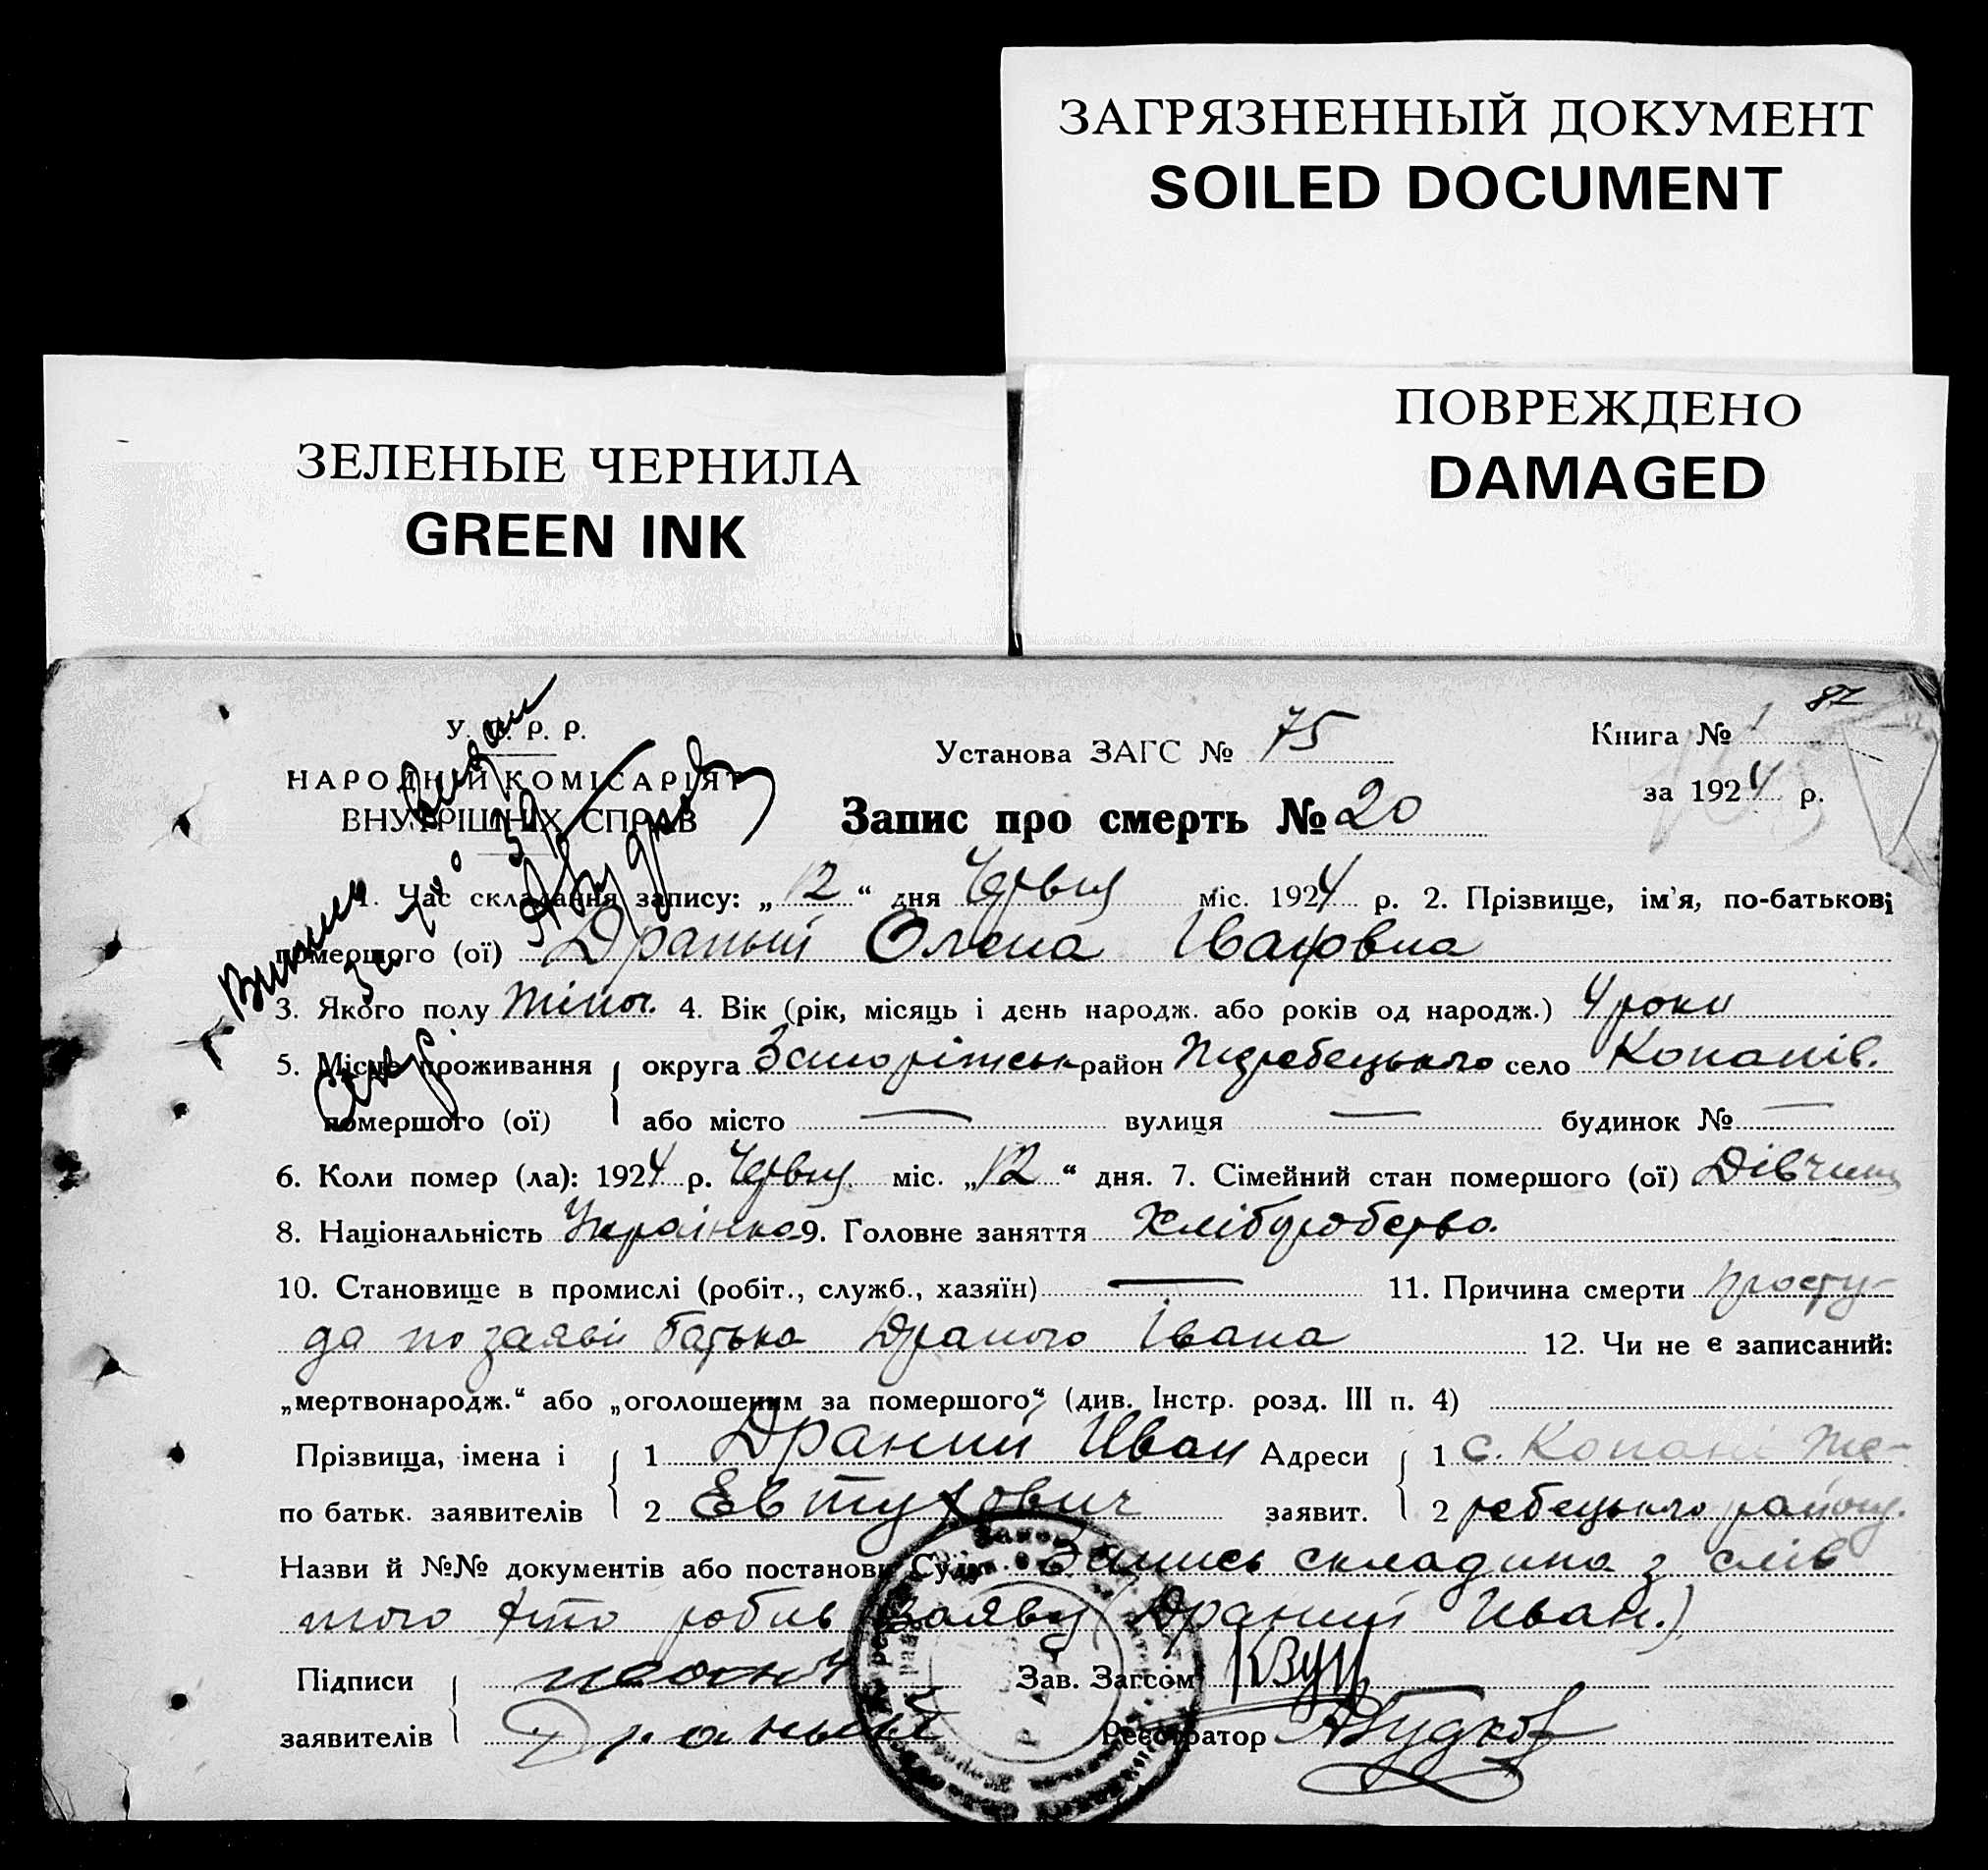 ЗАГРЯЗНЕННЫЙ ДОКУМЕНТ
SOILED DOCUMENT
ПОВРЕЖДЕНО
DAMAGED
ЗЕЛЕНЫЕ ЧЕРНИЛА
GREEN INK
82
У. С. Р. Р.
НАРОДНІЙ КОМІСАРІЯТ
ВНУТРІШНІХ СПРАВ
Установа ЗАГС № 75
Книга № 1
за 1924 р.
Запис про смерть № 20
1. Час складання запису: „12“ дня Червня міс. 1924 р. 2. Прізвище, ім'я, по-батькові
помершого (ої) Драный Олена Івановна
3. Якого полу жіноч. 4. Вік (рік, місяць і день народж. або років од народж.) 4 роки
5. Місце проживання округа Запоріжськ район Жеребецького село Копанів.
помершого (ої) або місто — вулиця — будинок № —
6. Коли помер (ла): 1924 р. Червня міс. „12“ дня. 7. Сімейний стан помершого (ої) Дівчина
8. Національність Українка 9. Головне заняття Хліборобство.
10. Становище в промислі (робіт., служб., хазяїн) — 11. Причина смерти просту-
да по заяві батька Драного Івана 12. Чи не є записаний:
„мертвонародж.“ або „оголошеним за помершого“ (див. Інстр. розд. III п. 4)
Прізвища, імена і 1 Драний Иван Адреси 1 с. Копані Же-
по батьк. заявителів 2 Евтухович заявит. 2 ребецького району.
Назви й №№ документів або постанови Суду Запись складина з слів
того хто робив заяву (Драний Иван.)
Підписи Зав. Загсом
заявителів Драный Реєстратор АБудков